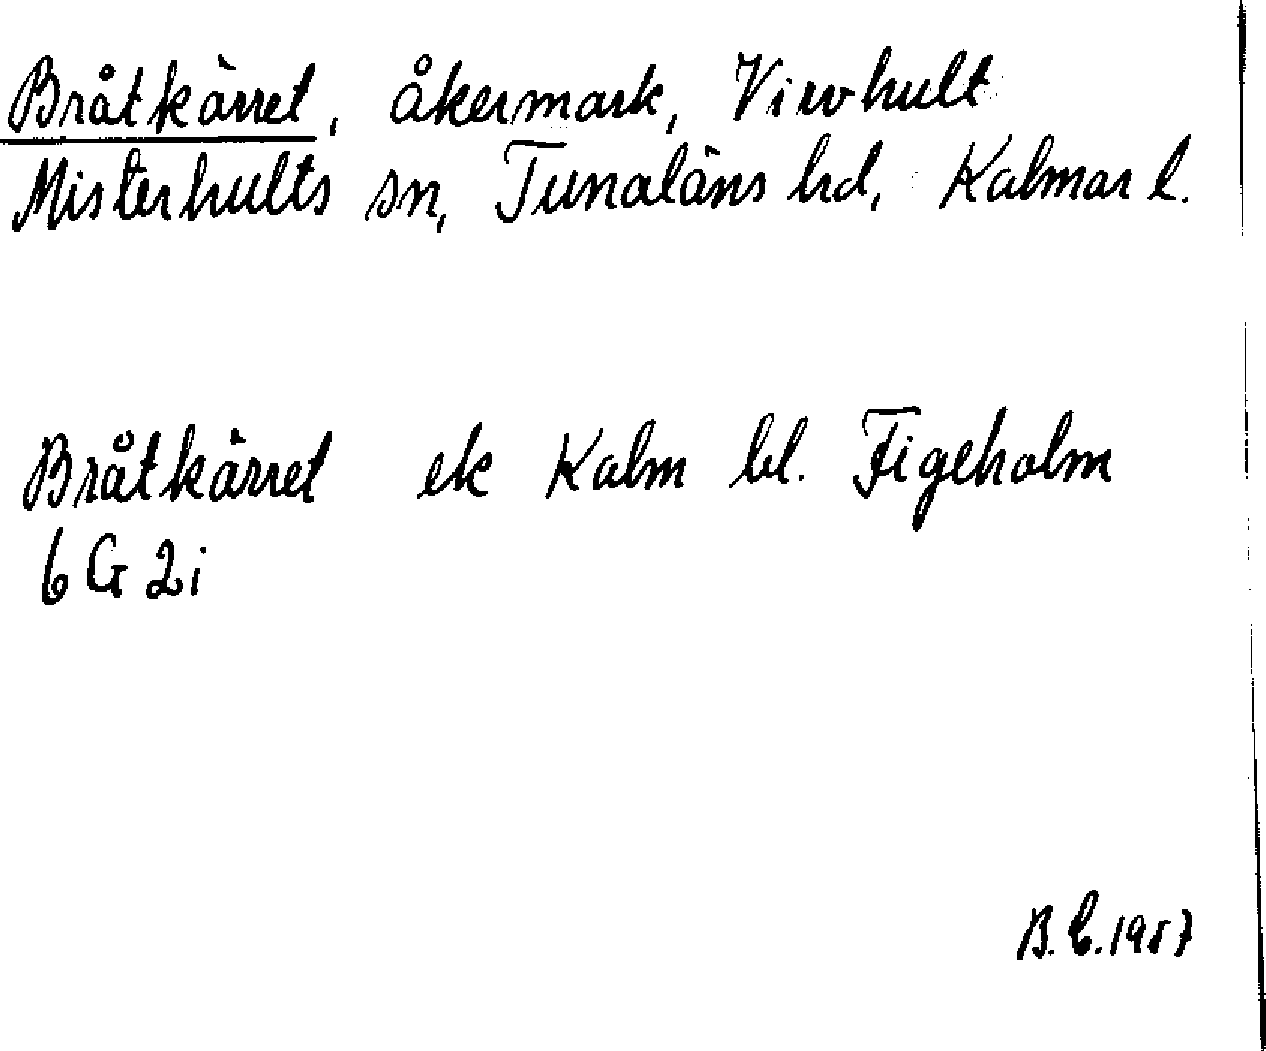 Bråtkärret, åkermark, Virvhult
Misterhults sn, Tunaläns hd, Kalmar l.
Bråtkärret ek Kalm bl. Figeholm
6 G 2i
B. E. 1987